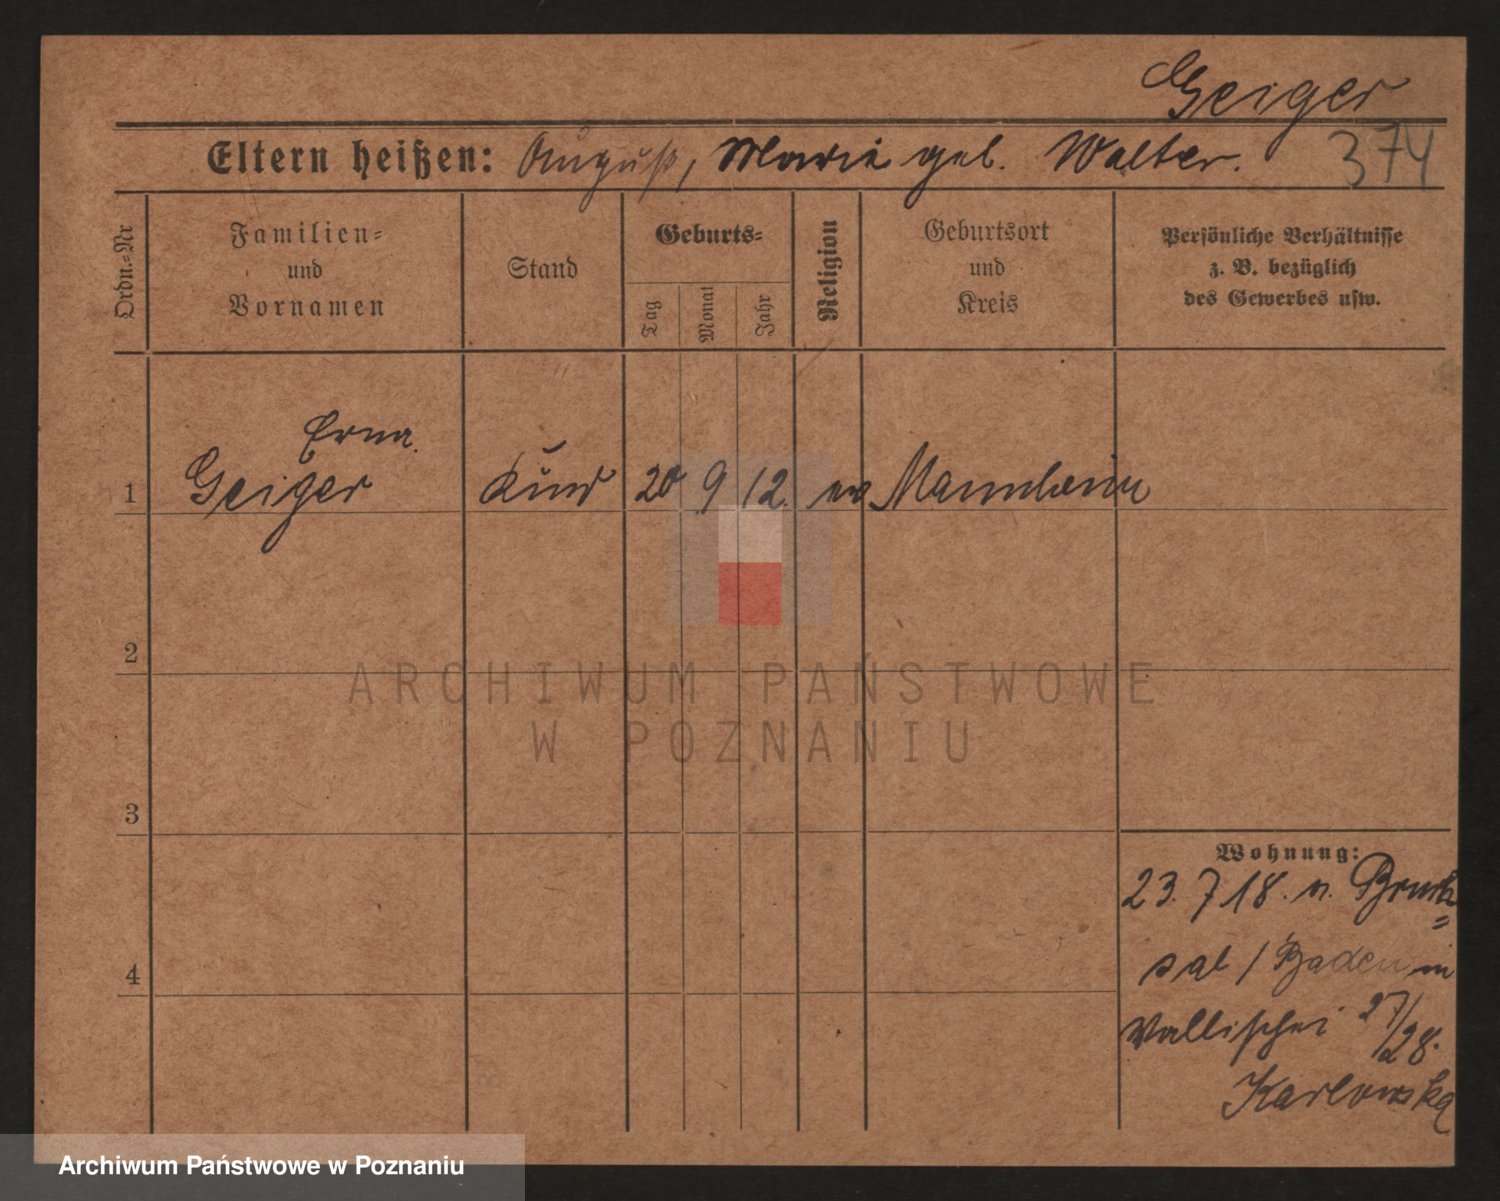 Geiger
Eltern heißen: August, Marie geb. Walter. 374
Ordn.-Nr
Familien-
und
Vornamen
Stand
Geburts-
Tag
Monat
Jahr
Religion
Geburtsort
und
Kreis
Persönliche Verhältnisse
z. B. bezüglich
des Gewerbes usw.
Erna
1 Geiger Kind 20 9 12. ev Mannheim
2
3
4
Wohnung:
23. 7 18. v. Bruch=
sal / Baden in
Wallischei 27/28.
Karlowska
ARCHIWUM PAŃSTWOWE
W POZNANIU
Archiwum Państwowe w Poznaniu